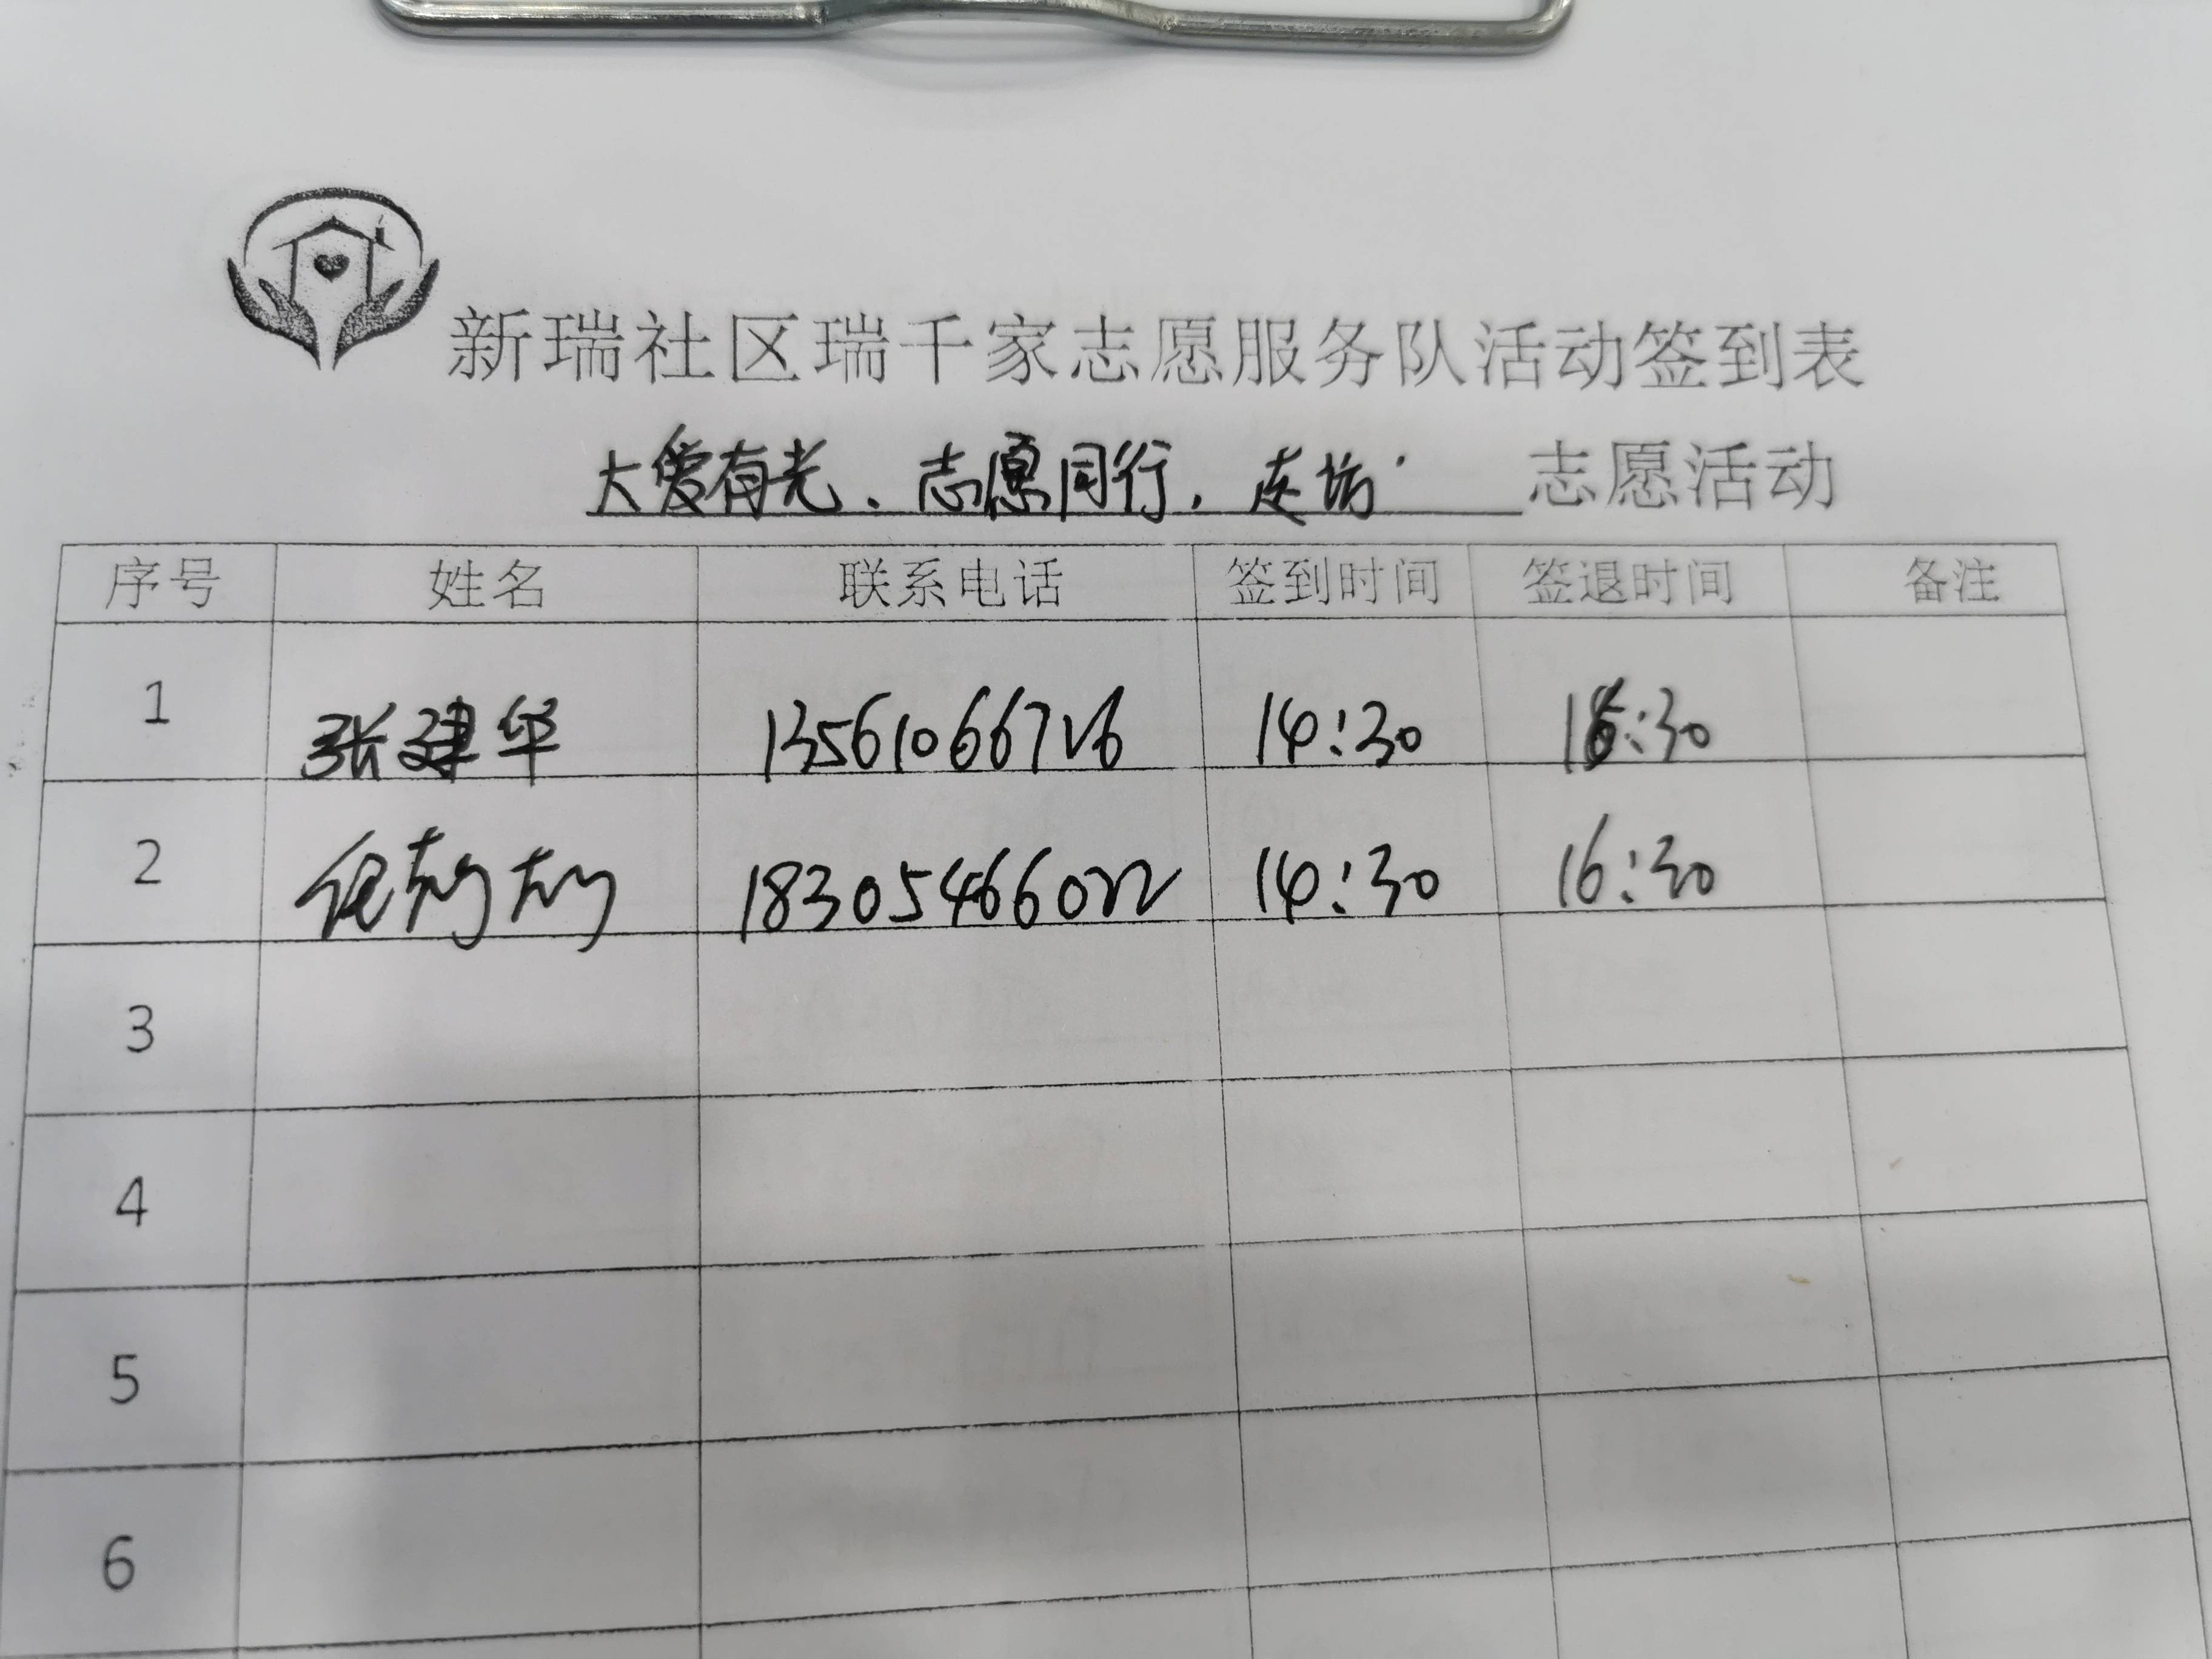 新瑞社区瑞千家志愿服务队活动签到表
大爱有光、志愿同行, 走访 志愿活动
序号 姓名 联系电话 签到时间 签退时间 备注
1 张建华 13561066726 14:30 16:30
2 18305466022 14:30 16:30
3
4
5
6